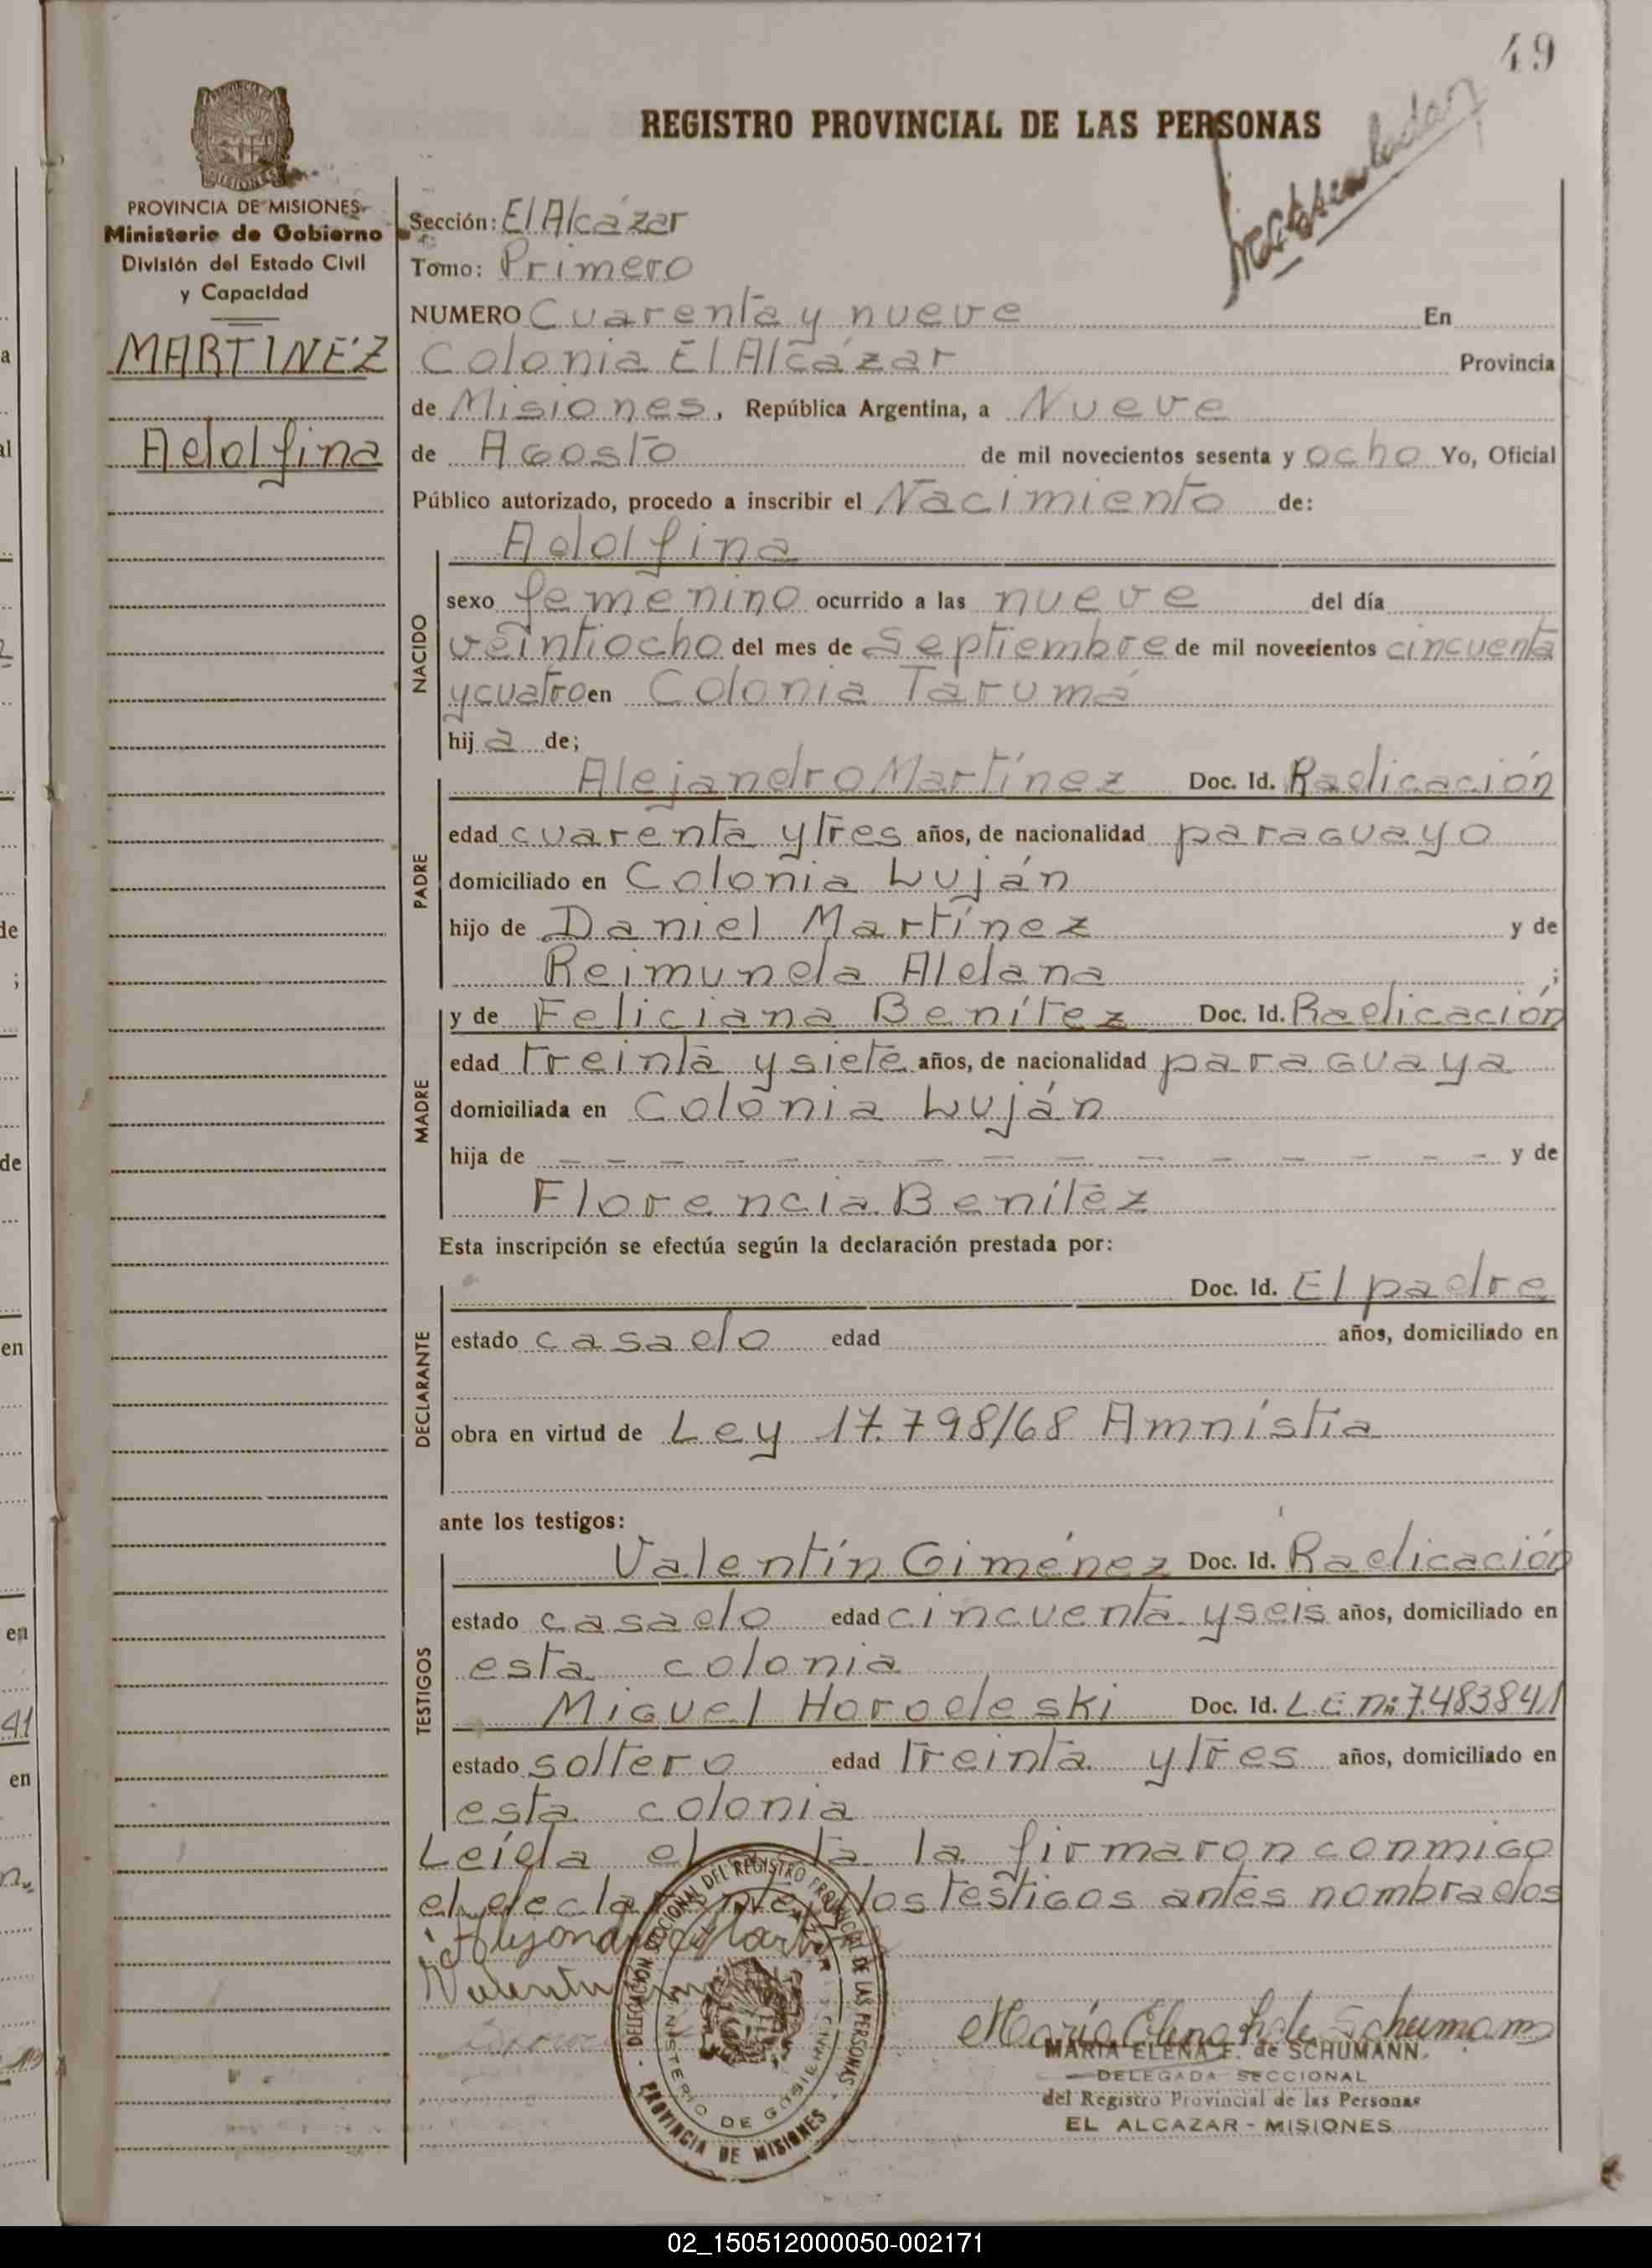 49
REGISTRO PROVINCIAL DE LAS PERSONAS
PROVINCIA DE MISIONES
Ministerio de Gobierno
División del Estado Civil
y Capacidad
MARTINEZ
Adolfina
Sección: El Alcázar
Tomo: Primero
NUMERO Cuarenta y nueve En
Colonia El Alcázar Provincia
de Misiones, República Argentina, a Nueve
de Agosto de mil novecientos sesenta y ocho Yo, Oficial
Público autorizado, procedo a inscribir el Nacimiento de:
NACIDO
Adolfina
sexo femenino ocurrido a las nueve del día
veintiocho del mes de Septiembre de mil novecientos cincuenta
y cuatro en Colonia Tarumá
hij a de;
PADRE
Alejandro Martínez Doc. Id. Radicación
edad cuarenta y tres años, de nacionalidad paraguayo
domiciliado en Colonia Luján
hijo de Daniel Martínez y de
Reimunda Aldana ;
MADRE
y de Feliciana Benítez Doc. Id. Radicación
edad treinta y siete años, de nacionalidad paraguaya
domiciliada en Colonia Luján
hija de — — — — — — — — — — — — — — — — y de
Florencia Benítez
Esta inscripción se efectúa según la declaración prestada por:
DECLARANTE
Doc. Id. El padre
estado casado edad años, domiciliado en
obra en virtud de Ley 17.798/68 Amnistia
ante los testigos:
TESTIGOS
Valentín Giménez Doc. Id. Radicación
estado casado edad cincuenta y seis años, domiciliado en
esta colonia
Miguel Horodeski Doc. Id. L.E. Nº 7.483841
estado soltero edad treinta y tres años, domiciliado en
esta colonia
Leída el ta la firmaron conmigo
el declarante y los testigos antes nombrados
Alejandro Mart
Valentin
DELEGACIÓN SECCIONAL DEL REGISTRO PROVINCIAL DE LAS PERSONAS
MINISTERIO DE GOBIERNO
PROVINCIA DE MISIONES
María Elena F. de Schumann
MARIA ELENA F. de SCHUMANN
DELEGADA SECCIONAL
del Registro Provincial de las Personas
EL ALCAZAR - MISIONES
02_150512000050-002171